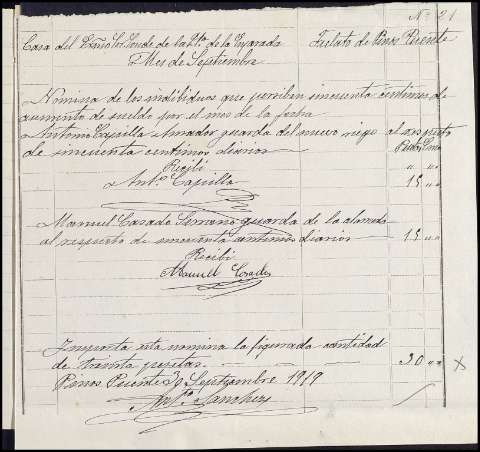 Nº 21
Casa del Exmo Sor Conde de la Pta de la Quesada Estado de Pinos Puente
Mes de Septiembre
Nomina de los indibiduos que perciben cincuenta centimos de
aumento de sueldo por el mes de la fecha
Antonio Capilla Amador guarda del nuevo riego al respeto
de cincuenta centimos diarios
Recibi
Antº Capilla 15
Manuel Casado Serrano guarda de la alameda
al respeto de cincuenta centimos diarios 15
Recibi
Manuel Casado
Importa esta nomina la figurada cantidad
de treinta pesetas. 30 x
Pinos Puente 30 Septiembre 1919
Antº Sanchez